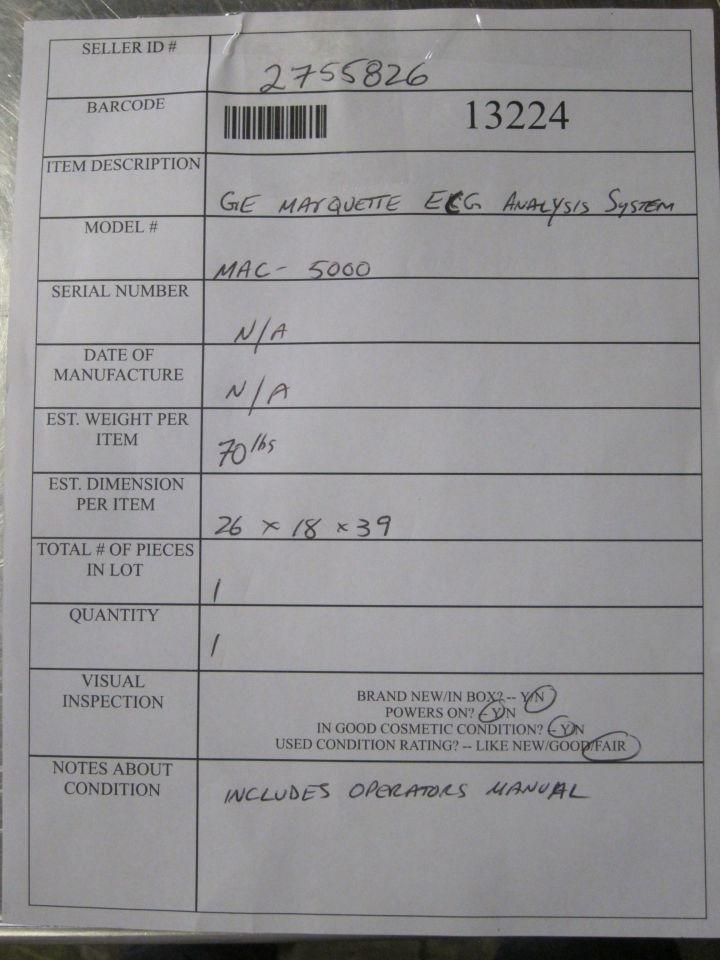 SELLER ID #
2755826
BARCODE
13224
ITEM DESCRIPTION
GE MARQUETTE ECG ANALYSIS SYSTEM
MODEL #
MAC- 5000
SERIAL NUMBER
N/A
DATE OF
MANUFACTURE
N/A
EST. WEIGHT PER
ITEM
70 lbs
EST. DIMENSION
PER ITEM
26 x 18 x 39
TOTAL # OF PIECES
IN LOT
1
QUANTITY
1
VISUAL
INSPECTION
BRAND NEW/IN BOX? -- Y/N
POWERS ON? -- Y/N
IN GOOD COSMETIC CONDITION? -- Y/N
USED CONDITION RATING? -- LIKE NEW/GOOD/FAIR
NOTES ABOUT
CONDITION
INCLUDES OPERATORS MANUAL